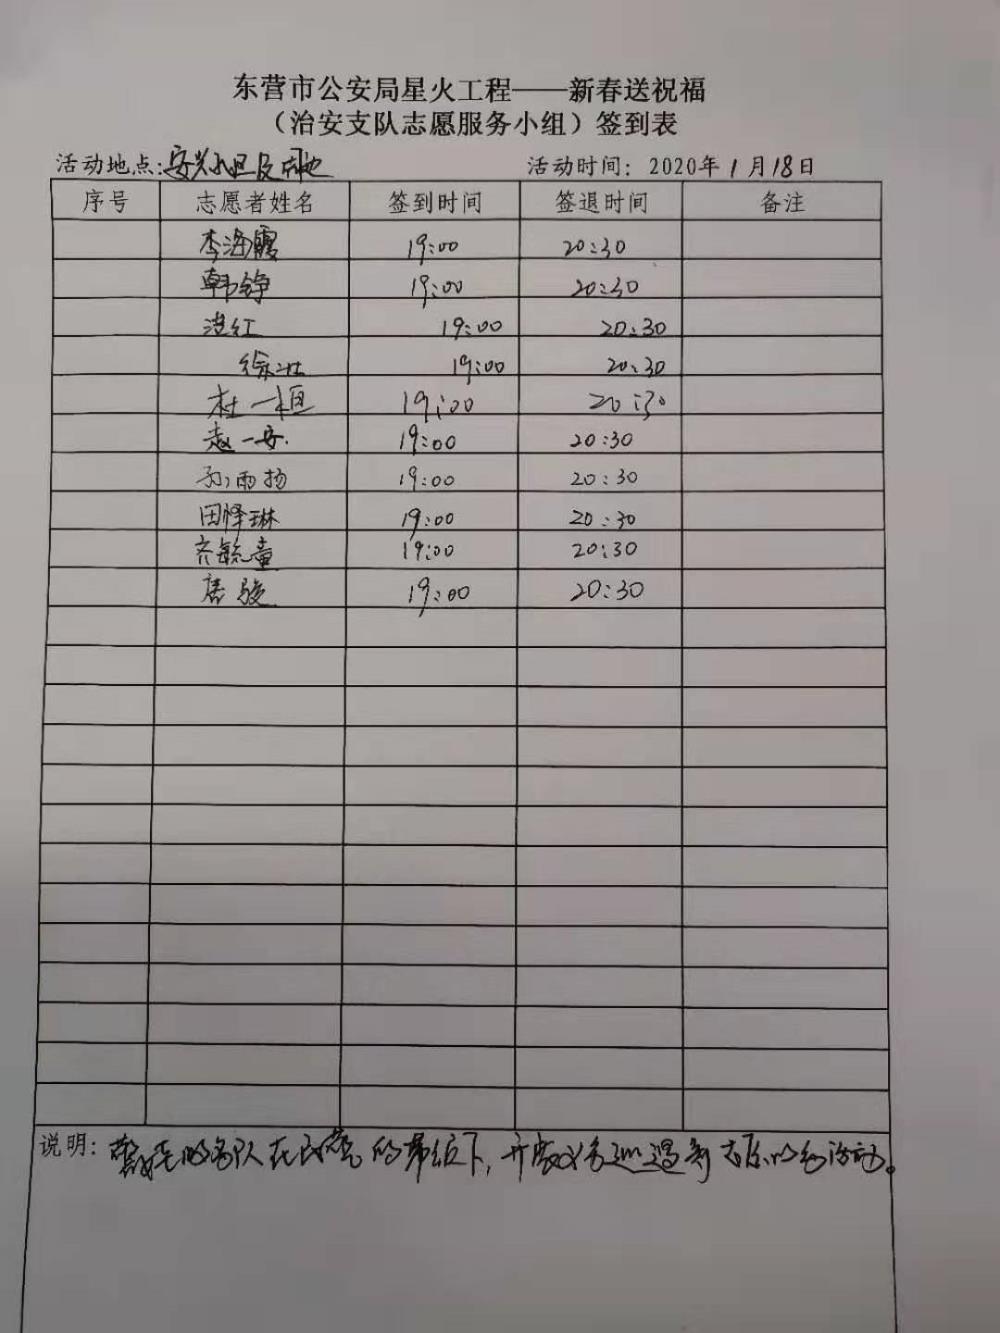 东营市公安局星火工程——新春送祝福
（治安支队志愿服务小组）签到表
活动地点: 安兴小区及 活动时间: 2020年1月18日
序号 志愿者姓名 签到时间 签退时间 备注
李海霞 19:00 20:30
韩铮 19:00 20:30
红 19:00 20:30
徐 19:00 20:30
杜一桓 19:00 20:30
赵一安 19:00 20:30
孙雨扬 19:00 20:30
田怿琳 19:00 20:30
齐毓童 19:00 20:30
唐骏 19:00 20:30
说明: 队在民警的带领下,开展义务巡逻 志愿 活动。